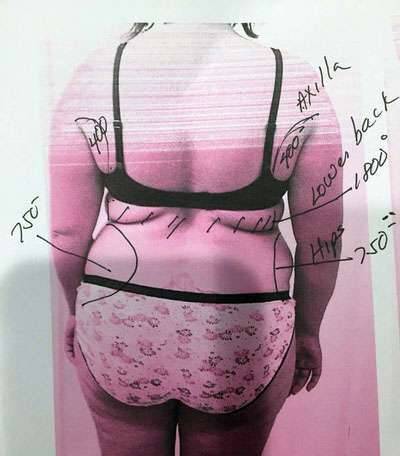 AXilla
400
400-
Lower back
1,800-
750-
Hips
750-